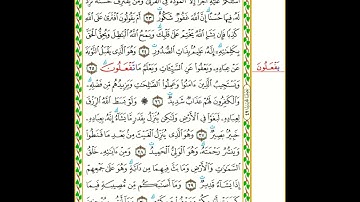 أَسْـَٔلُكُمْ عَلَيْهِ أَجْرًا إِلَّا ٱلْمَوَدَّةَ فِى ٱلْقُرْبَىٰ وَمَن يَقْتَرِفْ حَسَنَةً نَّزِدْ
لَهُۥ فِيهَا حُسْنًا إِنَّ ٱللَّهَ غَفُورٌ شَكُورٌ ٢٣ أَمْ يَقُولُونَ ٱفْتَرَىٰ عَلَى ٱللَّهِ
كَذِبًا فَإِن يَشَإِ ٱللَّهُ يَخْتِمْ عَلَىٰ قَلْبِكَ وَيَمْحُ ٱللَّهُ ٱلْبَٰطِلَ وَيُحِقُّ ٱلْحَقَّ
بِكَلِمَٰتِهِۦٓ إِنَّهُۥ عَلِيمٌۢ بِذَاتِ ٱلصُّدُورِ ٢٤ وَهُوَ ٱلَّذِى يَقْبَلُ ٱلتَّوْبَةَ
عَنْ عِبَادِهِۦ وَيَعْفُوا۟ عَنِ ٱلسَّيِّـَٔاتِ وَيَعْلَمُ مَا تَفْعَلُونَ ٢٥
يَفْعَلُونَ
وَيَسْتَجِيبُ ٱلَّذِينَ ءَامَنُوا۟ وَعَمِلُوا۟ ٱلصَّٰلِحَٰتِ وَيَزِيدُهُم مِّن فَضْلِهِۦ
وَٱلْكَٰفِرُونَ لَهُمْ عَذَابٌ شَدِيدٌ ٢٦ وَلَوْ بَسَطَ ٱللَّهُ ٱلرِّزْقَ
لِعِبَادِهِۦ لَبَغَوْا۟ فِى ٱلْأَرْضِ وَلَٰكِن يُنَزِّلُ بِقَدَرٍ مَّا يَشَآءُ إِنَّهُۥ بِعِبَادِهِۦ
خَبِيرٌۢ بَصِيرٌ ٢٧ وَهُوَ ٱلَّذِى يُنَزِّلُ ٱلْغَيْثَ مِنۢ بَعْدِ مَا قَنَطُوا۟
وَيَنشُرُ رَحْمَتَهُۥ وَهُوَ ٱلْوَلِىُّ ٱلْحَمِيدُ ٢٨ وَمِنْ ءَايَٰتِهِۦ خَلْقُ
ٱلسَّمَٰوَٰتِ وَٱلْأَرْضِ وَمَا بَثَّ فِيهِمَا مِن دَآبَّةٍ وَهُوَ عَلَىٰ جَمْعِهِمْ
إِذَا يَشَآءُ قَدِيرٌ ٢٩ وَمَآ أَصَٰبَكُم مِّن مُّصِيبَةٍ فَبِمَا